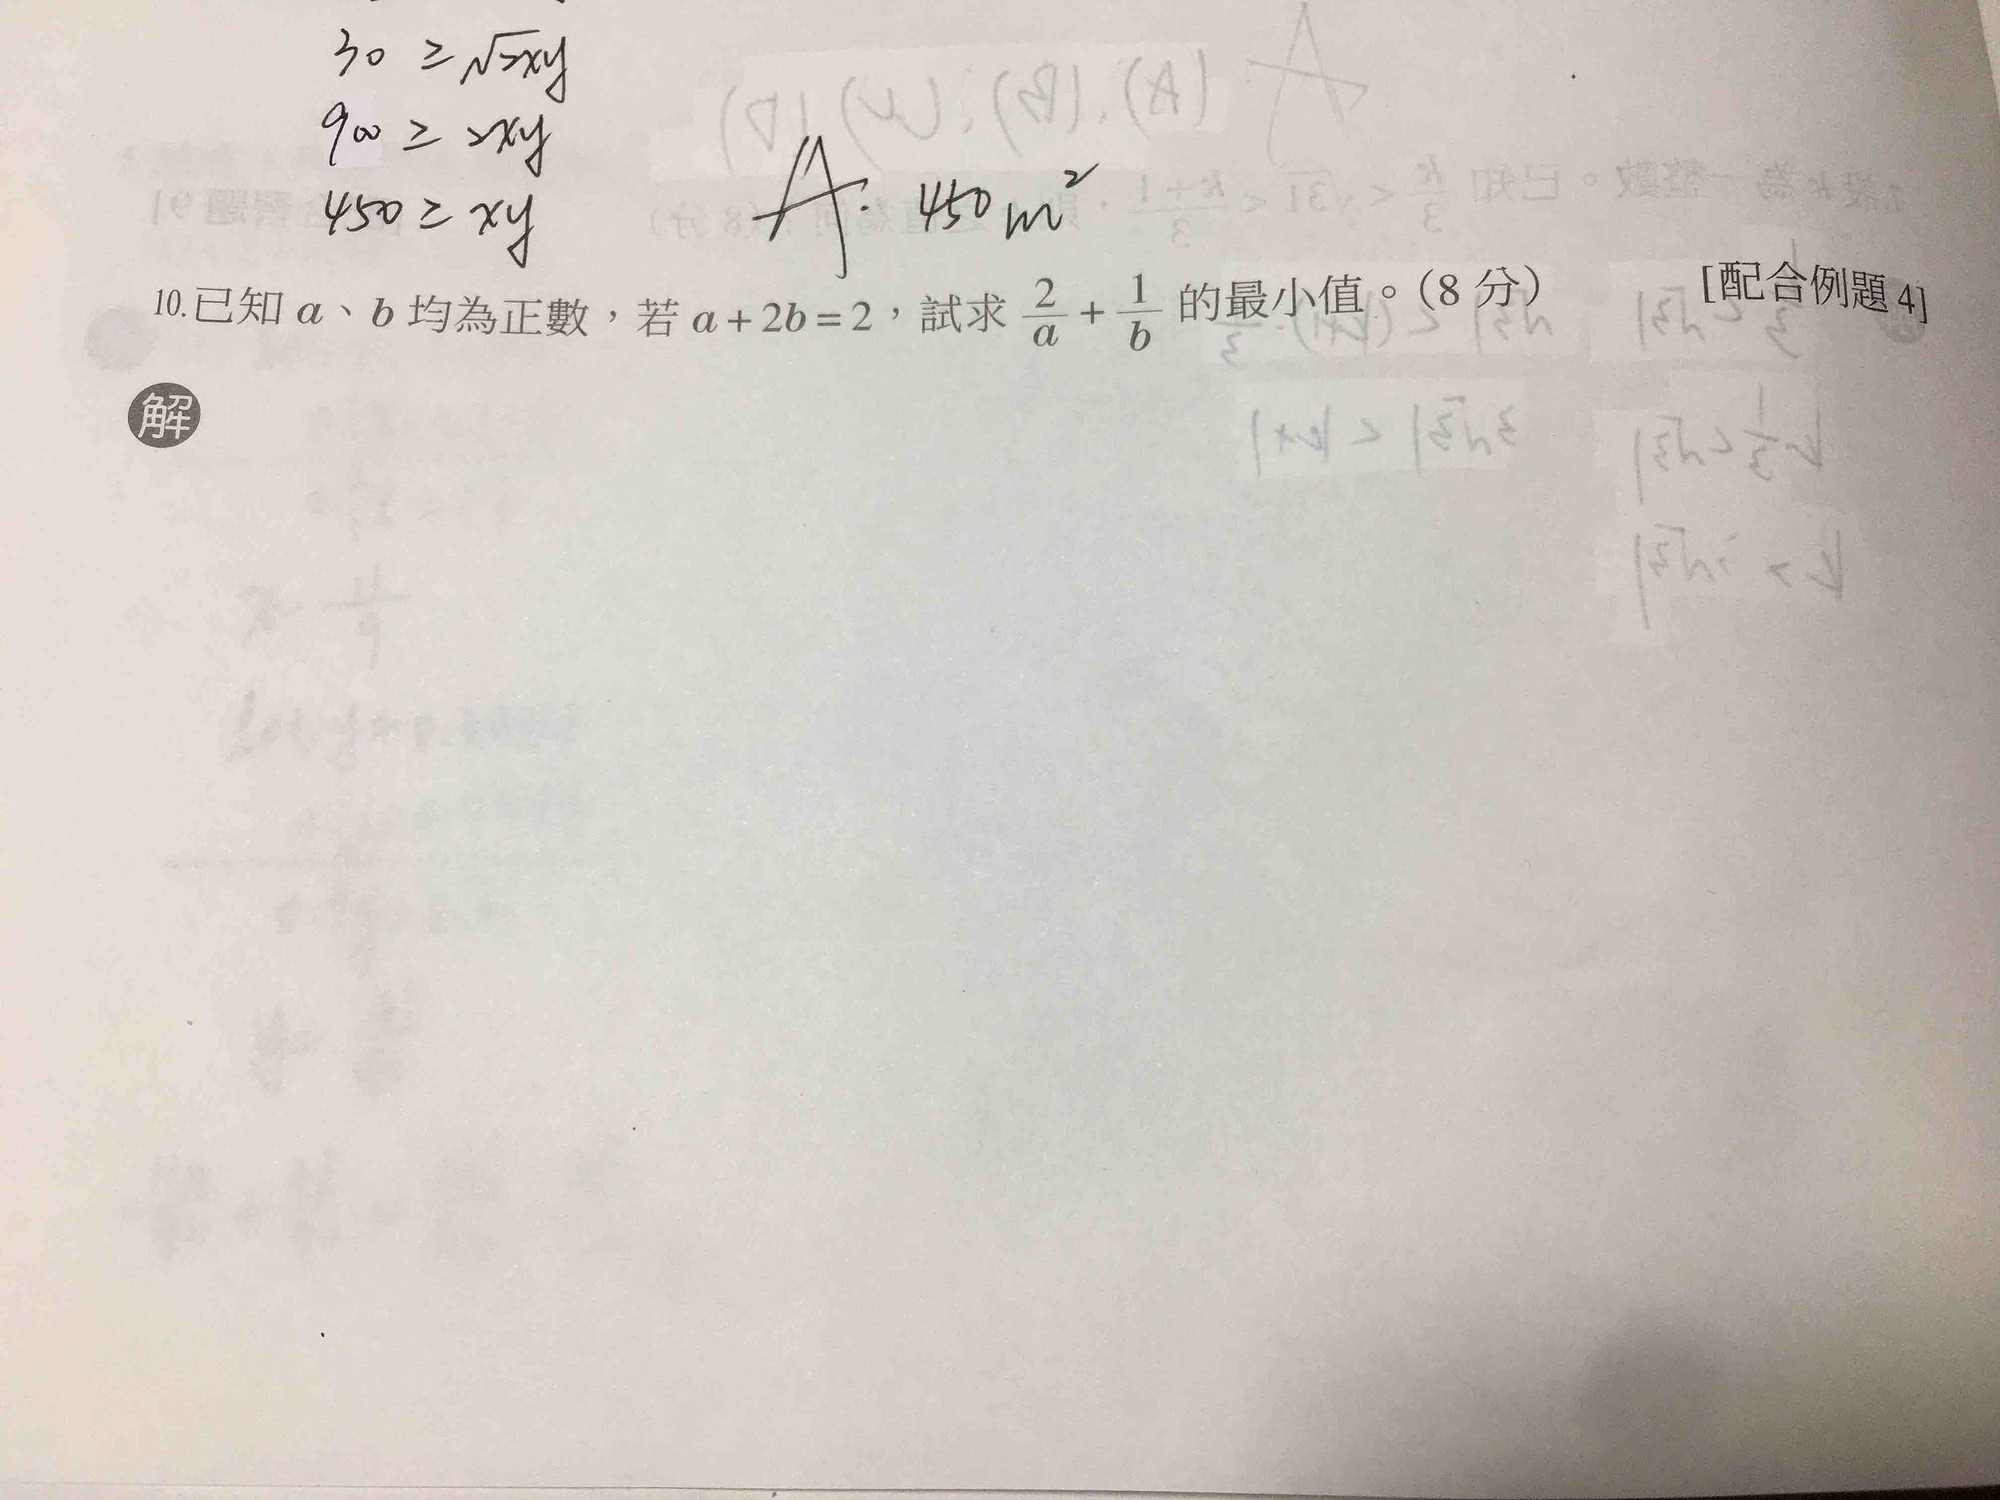 30 ≥ √2xy
900 ≥ 2xy
450 ≥ xy
A: 450 m²
10.已知 a、b 均為正數，若 a + 2b = 2，試求 2/a + 1/b 的最小值。(8 分) [配合例題 4]
解